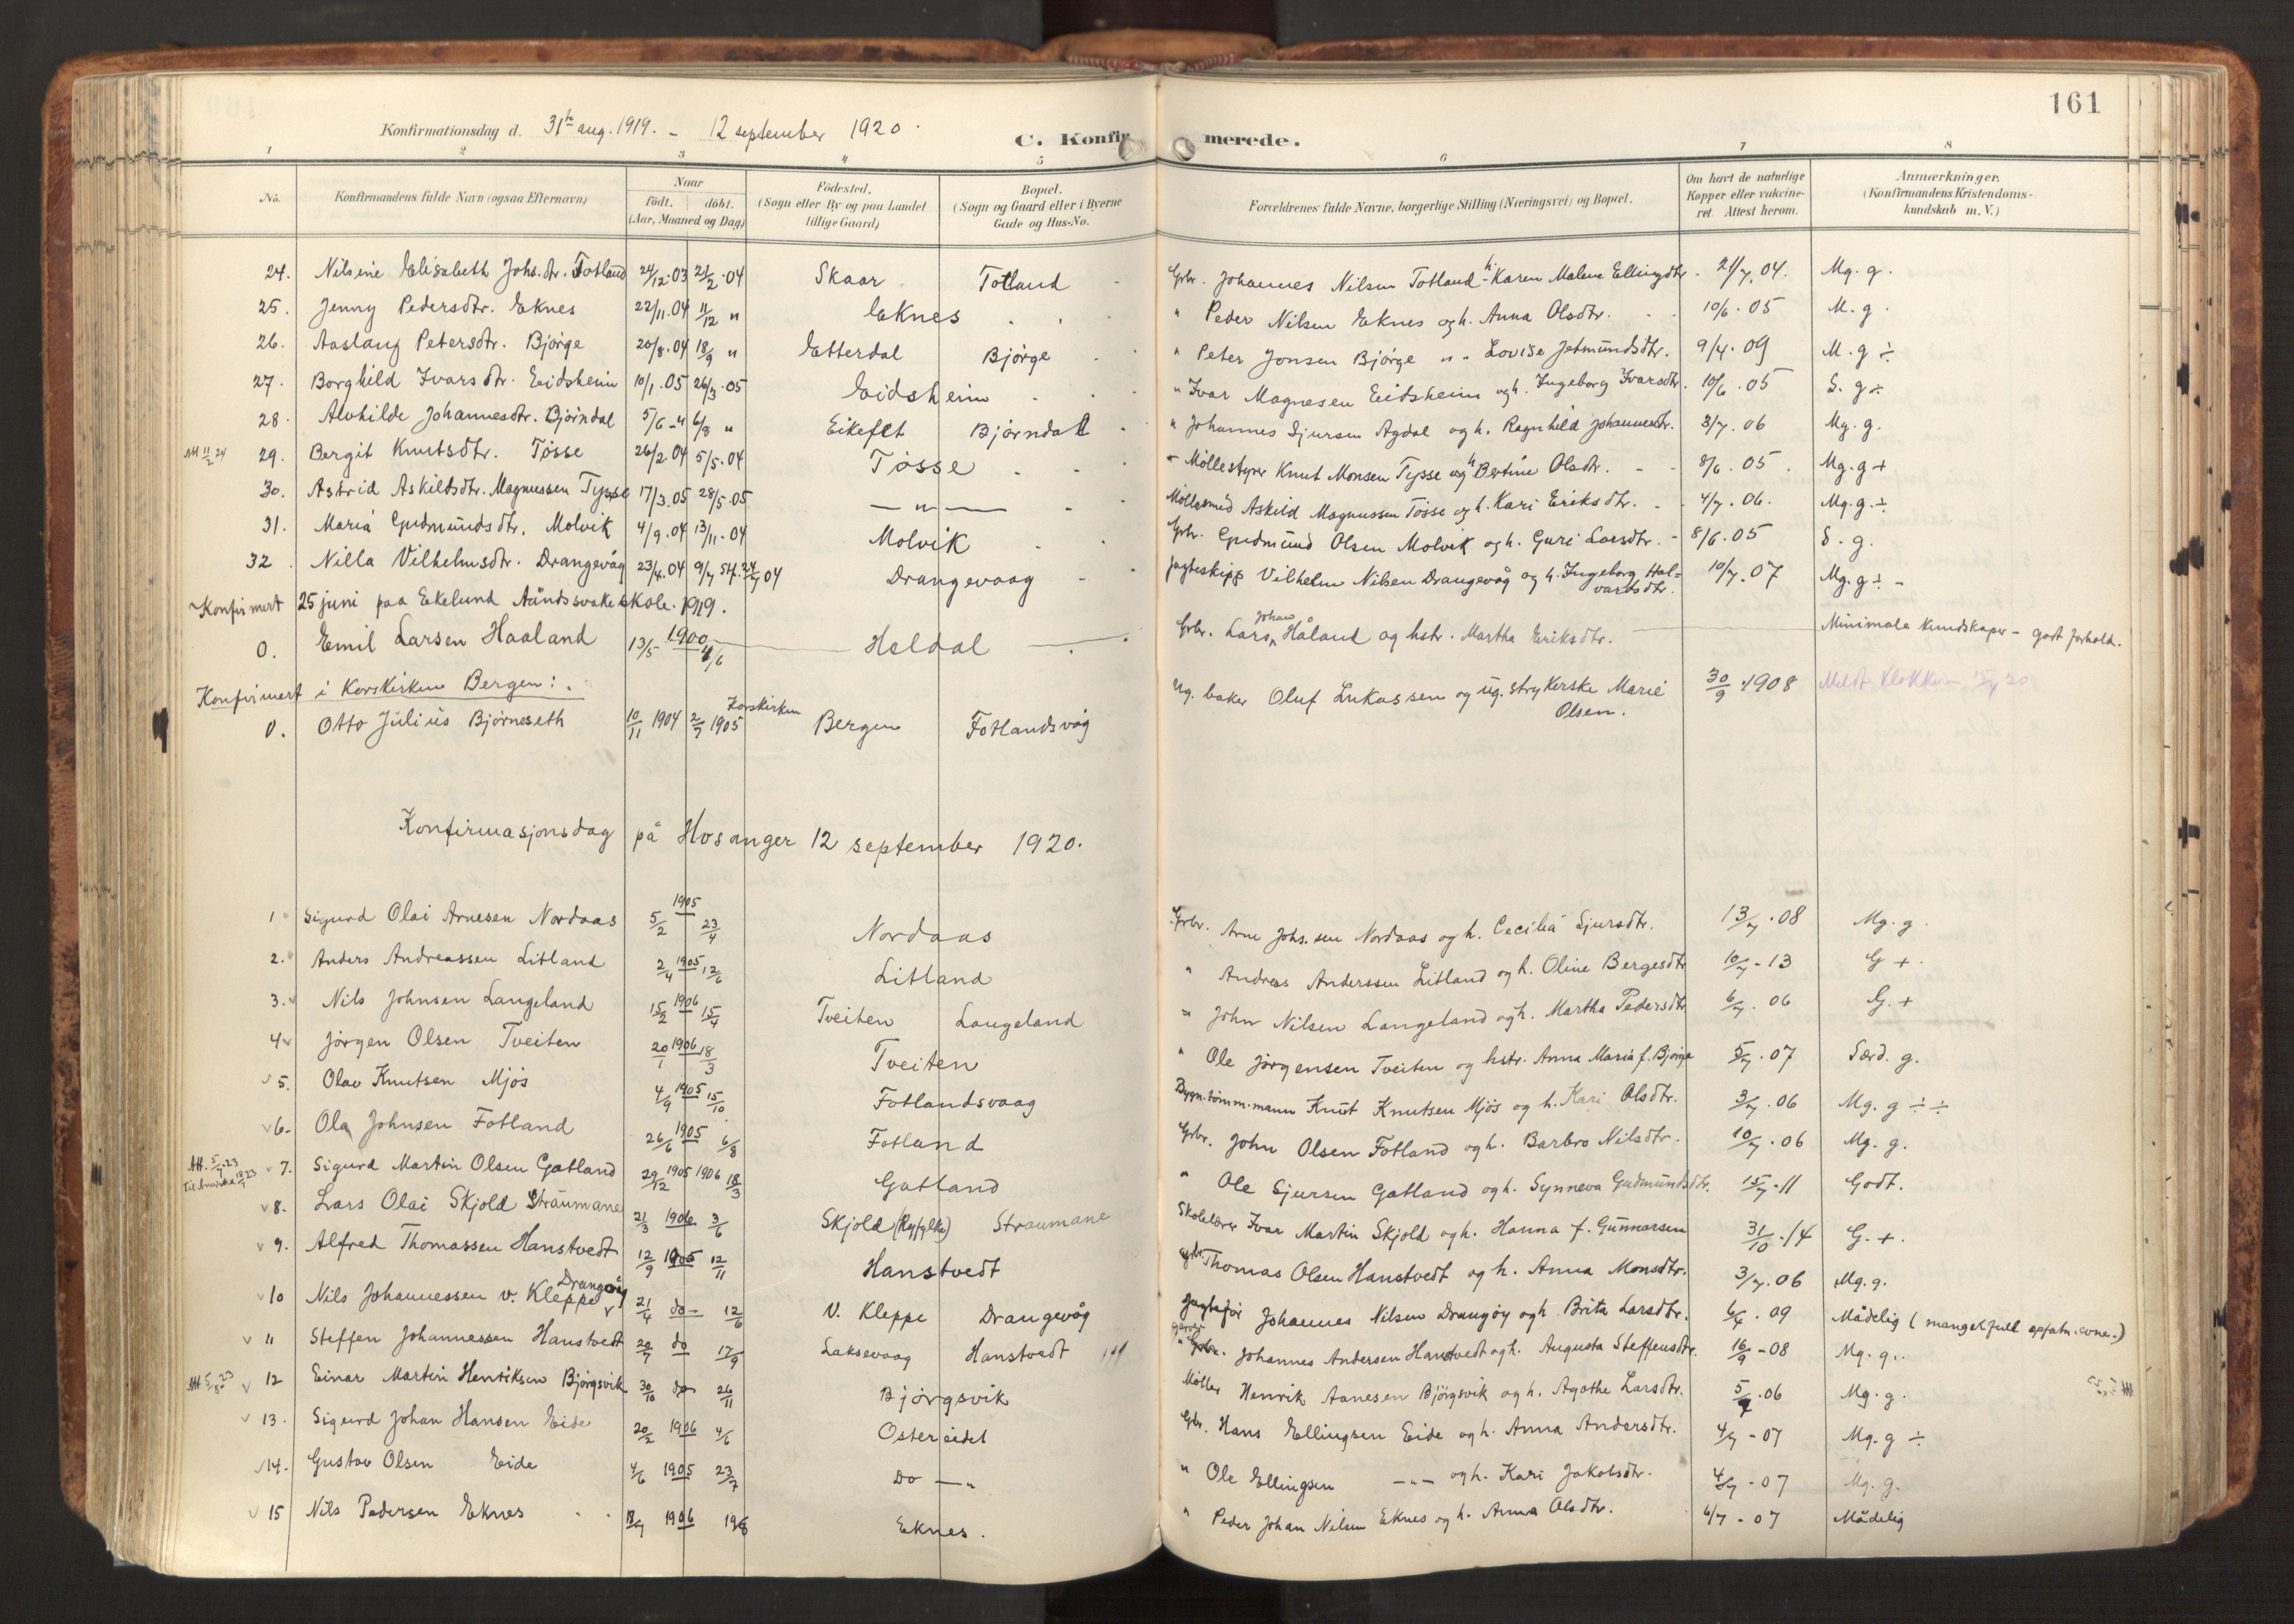 161
Konfirmationsdag d. 31te aug. 1919. – 12 september 1920.
C. Konfirmerede.
1 2 3 4 5 6 7 8
No. Konfirmandens fulde Navn (ogsaa Efternavn) Naar födt. döbt. (Aar, Maaned og Dag) Födested. (Sogn eller By og paa Landet tillige Gaard) Bopæl. (Sogn og Gaard eller i Byerne Gade og Hus-No. Forældrenes fulde Navne, borgerlige Stilling (Næringsvei) og Bopæl. Om havt de naturlige Kopper eller vakcineret Attest herom. Anmerkninger. (Konfirmandens Kristendomskundskab m. V.)
24. Nilsine Elisabeth Johs.dtr. Fotland 24/12.03 21/2.04 Skaar Totland Gbr. Johannes Nilsen Totland h. Karen Malene Ellingsdtr. 21/7.04. Mg. g.
25. Jenny Pedersdtr. Eknes 22/11.04 11/12 " Eknes " Peder Nilsen Eknes og h. Anna Olsdtr. 10/6.05 M. g.
26. Aaslaug Petersdtr. Bjørge 20/8.04 18/9 " Etterdal Bjørge " Peter Jonsen Bjørge " " Lovise Jetmundsdtr. 9/4.09 M. g ÷
27. Borghild Ivarsdtr. Eidsheim 10/1.05 26/3.05 Eidsheim " Ivar Magnesen Eidsheim og h. Ingeborg Ivarsdtr. 10/6.05 S. g ÷
28. Alvhilde Johannesdtr. Bjørndal 5/6 - " 6/8 " Eikefet Bjørndal " Johannes Sjursen Agdal og h. Ragnhild Johannesdtr. 3/7.06 Mg. g.
Att 11/2 24 29. Bergit Knutsdtr. Tøsse 26/2.04 5/5.04 Tøsse " Møllestyrer Knut Monsen Tysse og h Bertine Olsdtr. 8/6.05. Mg. g +
30. Astrid Askildsdtr. Magnussen Tysse 17/3.05 28/5.05 — " — Møllesmed Askild Magnussen Tøsse og h. Kari Eriksdtr. 4/7.06. Mg. g. ÷
31. Maria Gudmundsdtr. Molvik 4/9.04 13/11.04 Molvik Gbr. Gudmund Olsen Molvik og h. Guri Larsdtr. 8/6.05 S. g.
32. Nilla Vilhelmsdtr. Drangevåg 23/4.04 9/7 St. 24/7 04 Drangevaag Jagteskipp Vilhelm Nilsen Drangevåg og h. Ingeborg Halvardsdtr. 10/7.07 Mg. g ÷ -
Konfirmert 25 juni paa Ekelund Aandssvake skole. 1919.
0. Emil Larsen Haaland 13/5 1900 4/6 Heldal Gbr. Lars Johan Håland og hstr. Martha Eriksdtr. Minimale kundskaper – godt forhold.
Konfirmert i Korskirken Bergen:
0. Otto Julius Bjørneseth 10/11 1904 2/7 1905 Korskirken Bergen Fotlandsvåg Ug. baker Oluf Lukassen og ug. strykerske Marie Olsen. 30/9.1908 Meldt klokkeren
Konfirmasjonsdag på Hosanger 12 september 1920.
1 Sigurd Olai Arnesen Nordaas 5/2 1905 23/4 Nordaas Grbr. Arne Johs.sen Nordaas og h. Cecilia Sjursdtr. 13/7.08 Mg. g.
2. Anders Andreassen Litland 2/4 1905 12/6 Litland " Andreas Anderssen Litland og h. Oline Bergesdtr 10/7-13 G +
3. Nils Johnsen Langeland 15/2 1906 15/4 Tveiten Langeland " John Nilsen Langeland og h. Martha Pedersdtr 6/7.06 G. +
4 Jörgen Olsen Tveiten 20/1 1906 18/3 Tveiten " Ole Jörgensen Tveiten og hstr. Anna Maria f. Bjørge 5/7.07 Særd. g.
5. Olav Knutsen Mjös 4/9 1905 15/10 Fotlandsvaag Bygn.tømm.mann Knut Knutsen Mjøs og h. Kari Olsdtr. 3/7.06 Mg. g ÷ ÷
6. Ola Johnsen Fotland 26/6 1905 6/8 Fotland Grbr. John Olsen Fotland og h. Barbro Nilsdtr. 10/7.06 Mg. g.
Att. 5/7 23 7. Sigurd Martin Olsen Gatland 29/12 1905 1906 18/3 Gatland " Ole Sjursen Gatland og h. Synneva Gudmundsdtr. 15/7-11 Godt.
8. Lars Olai Skjold Straumane 21/3 1906 3/6 Skjold (Ryfylke) Straumane Skolelærer Ivar Martin Skjold og h. Hanna f. Gunnarsen 31/10.14 G. +.
9. Alfred Thomassen Hanstvedt 12/9 1905 12/11 Hanstvedt Grbr. Thomas Olsen Hanstvedt og h. Anna Monsdtr. 3/7.06 Mg. g.
10 Nils Johannessen v. Kleppe Drangøy 21/4 do 12/6 V. Kleppe Drangevåg Jagtefør Johannes Nilsen Drangøy og h. Brita Larsdtr. 6/4.09 Mådelig (mangelfull opfatn.evne.)
11 Steffen Johannessen Hanstvedt 20/7 do 17/9 Laksevaag Hanstvedt garver Johannes Andersen Hanstvedt og h. Augusta Steffensdtr. 16/9-08 Mg. g.
Att 5/8 23 12 Einar Martin Henriksen Bjørgsvik 30/10 do 26/11 Bjørgsvik Møller Henrik Aanesen Bjørgsvik og h. Agathe Larsdtr. 5/7.06 Mg. g.
13. Sigurd Johan Hansen Eide 20/2 1906 4/6 Ostereidet Gbr. Hans Ellingsen Eide og h. Anna Andersdtr. 4/7-07 Mg. g ÷
14. Gustav Olsen Eide 4/6 1905 23/7 Do — " " Ole Ellingsen — " — og h. Kari Jakobsdtr. 4/7-07 Mg. g.
15 Nils Pedersen Eknes 18/7 1906 19/8 Eknes. " Peder Johan Nilsen Eknes og h. Anna Olsdtr. 6/7-07 Mådelig